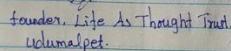 founder, Life As Thought Trust.
Udumalpet.